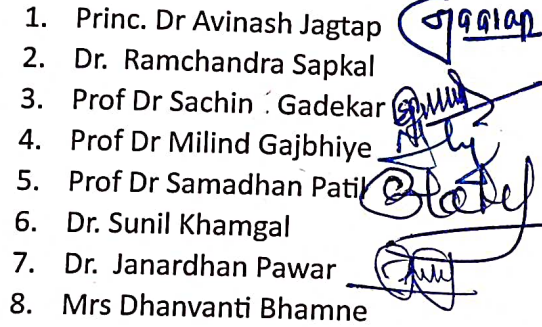 1. Princ. Dr Avinash Jagtap
2. Dr. Ramchandra Sapkal
3. Prof Dr Sachin : Gadekar
4. Prof Dr Milind Gajbhiye
5. Prof Dr Samadhan Patil
6. Dr. Sunil Khamgal
7. Dr. Janardhan Pawar
8. Mrs Dhanvanti Bhamne